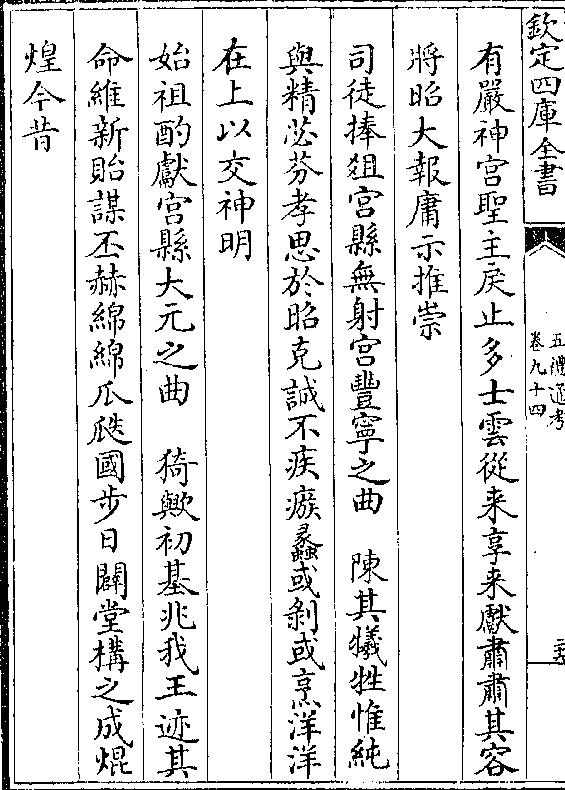 欽定四庫全書
五禮通考
卷九十四
有嚴神宫聖主戾止多士雲從来享来獻肅肅其容
將昭大報庸示推崇
司徒捧俎宫縣無射宫豐寧之曲 陳其犧牲惟純
與精苾芬孝思於昭克誠不疾瘯蠡或剝或烹洋洋
在上以交神明
始祖酌獻宫縣大元之曲 猗歟初基兆我王迹其
命維新貽謀丕赫綿綿瓜瓞國步日闢堂構之成焜
煌今昔